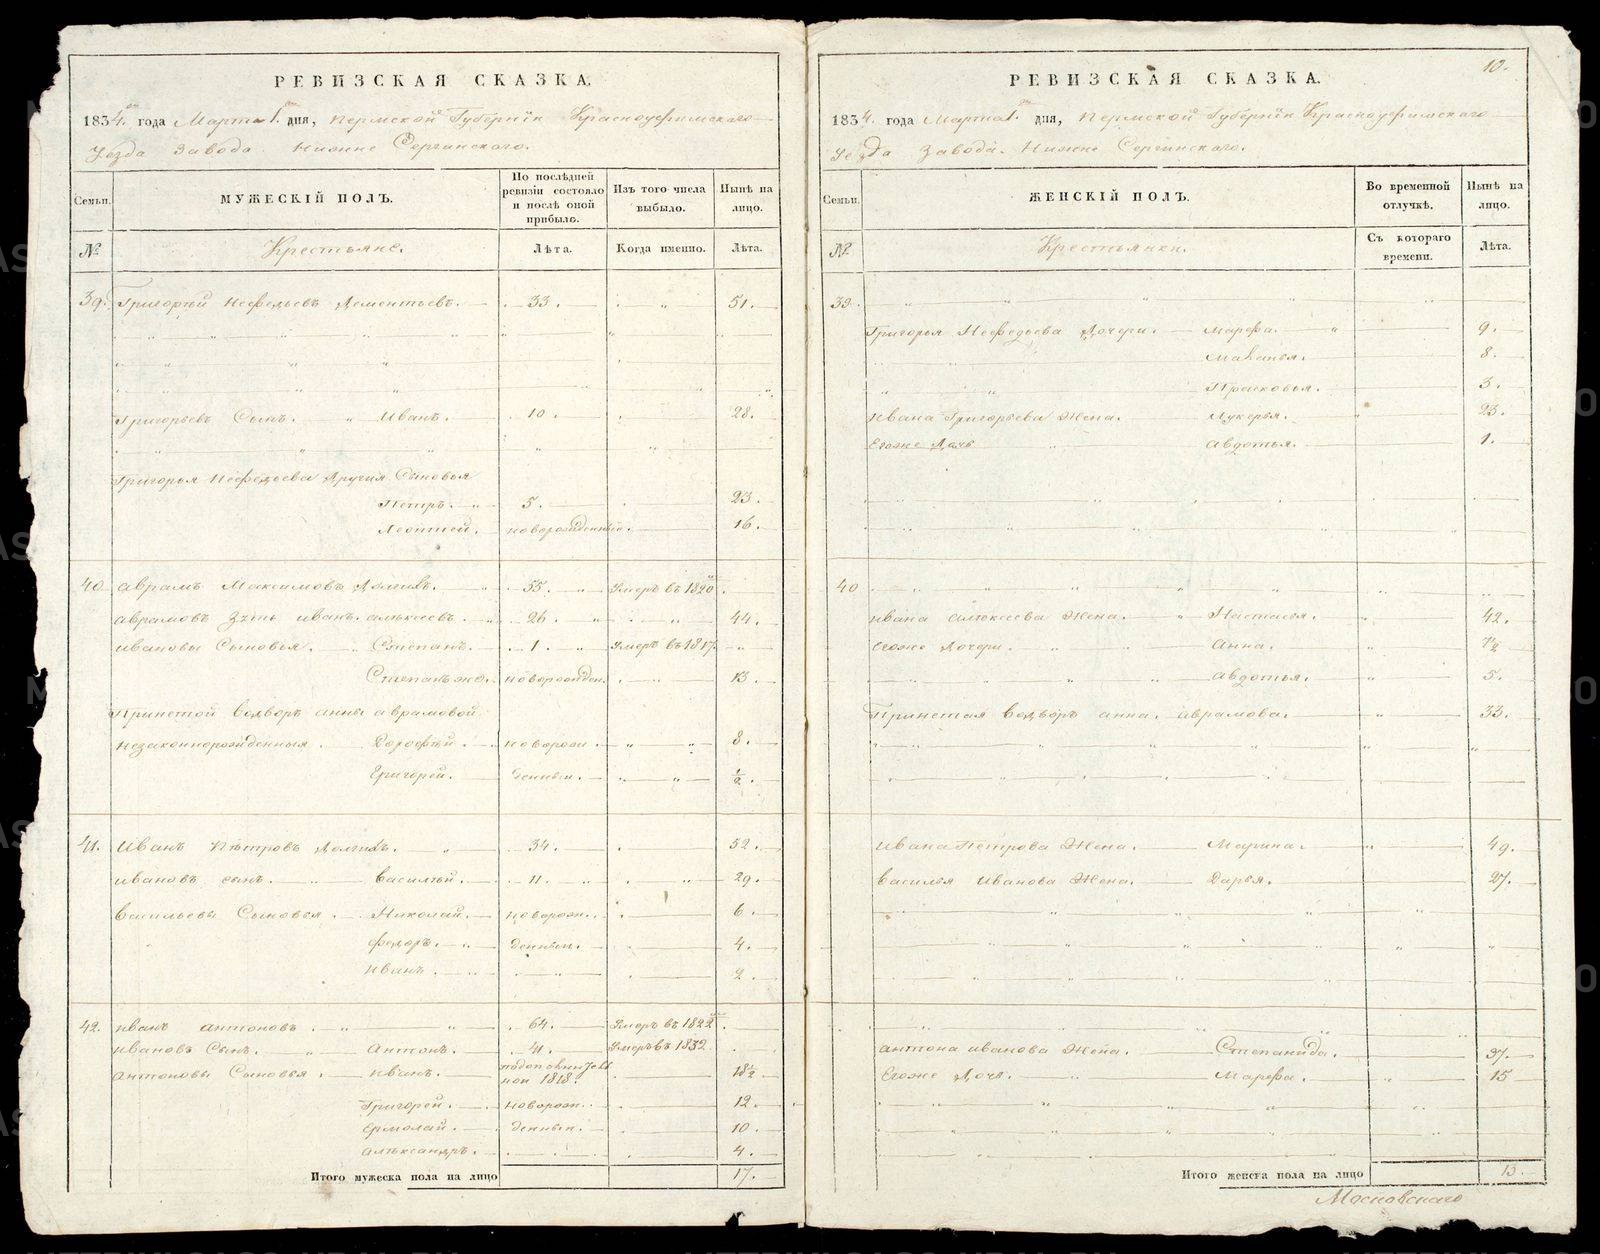 РЕВИЗСКАЯ СКАЗКА.
1834. года Марта 1. дня, Пермской Губернїи Красноуфимскаго
Уезда Завода Нижне Сергинскаго.
Семьи.
МУЖЕСКІЙ ПОЛЪ.
По послѣдней ревизіи состояло и послѣ оной прибыло.
Изъ того числа выбыло.
Нынѣ на лицо.
№
Крестьяне.
Лѣта.
Когда именно.
Лѣта.
39. Григорѣй Нефедьевъ Дементьевъ. 33. 51.
Григорьевъ Сынъ. Иванъ. 10. 28.
Григорья Нефедьева Другия Сыновья
Петръ. 5. 23.
Леонтей. новорожденные. 16.
40 Аврамъ Максимовъ 55. Умеръ въ 1820
Аврамовъ Зять иванъ алѣксеевъ. 26. 44.
Ивановы Сыновья. Степанъ. 1. Умеръ въ 1817.
Степанъ же. новорожден. 13.
Принетой Водворъ анны аврамовой
незаконнорожденныя. Дорофѣй. новорож 8.
Григорей. денныи. 1/2.
41. Иванъ Пѣтровъ Долгихъ. 34. 52.
ивановъ сынъ. Василѣй. 11. 29.
Васильевы Сыновья. Николай. новорож. 6.
федоръ. денныи. 4.
иванъ. 2.
42. иванъ антоновъ. 64. Умеръ въ 1822
ивановъ Сынъ. Антонъ. 41. Умеръ въ 1832
антоновы Сыновья. иванъ. 18 1/2
ной 1818.
Григорей. новорож. 12.
Ермолай. денныи. 10.
алѣксандръ. 4.
Итого мужеска пола на лицо 17.
10.
РЕВИЗСКАЯ СКАЗКА.
1834. года Марта 1. дня, Пермской Губернїи Красноуфимскаго
Уезда Завода. Нижне Сергинскаго.
Семьи.
ЖЕНСКІЙ ПОЛЪ.
Во временной отлучкѣ.
Нынѣ на лицо.
№
Крестьянки.
Съ котораго времени.
Лѣта.
39.
Григорья Нефедьева Дочери. Марфа. 9.
Маланья. 8.
Прасковья. 3.
Ивана Григорьева Жена. Лукерья. 23.
Егоже Дочь Авдотья. 1.
40
ивана алѣксеева Жена. Настасья. 42.
Егоже Дочери. Анна. 7 1/2
Авдотья. 5.
Принетая Водворъ анна. аврамова. 33.
Ивана Петрова Жена. Марина. 49.
Василья Иванова Жена. Дарья. 27.
антона иванова Жена. Степанида. 37.
Егоже Дочь. Марфа. 15
Итого женска пола на лицо 13.
Московскаго